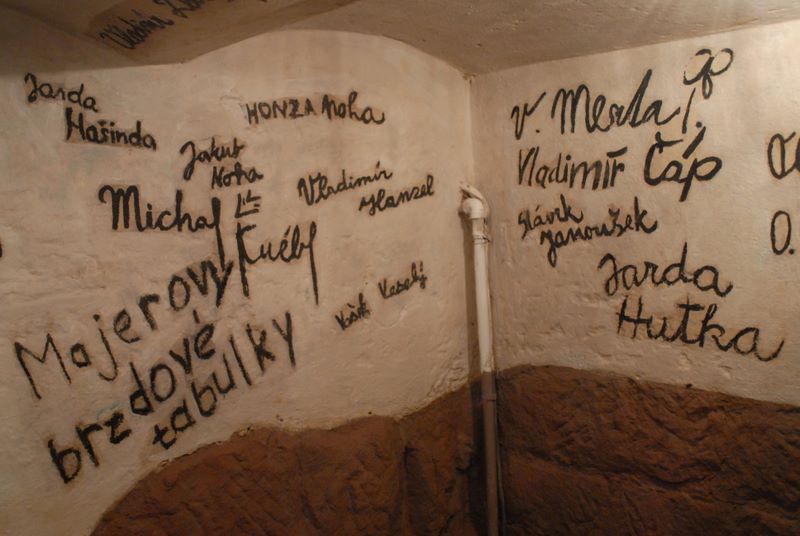 Jarda
Hašinda
HONZA Noha
Jakub
Noha
Michal
Kuébl
Vladimír
Hanzel
Majerovy
brzdové
tabulky
Vašek Veselý
V. Merta
Vladimír Čáp
Slávek
Janoušek
Jarda
Hutka
O.